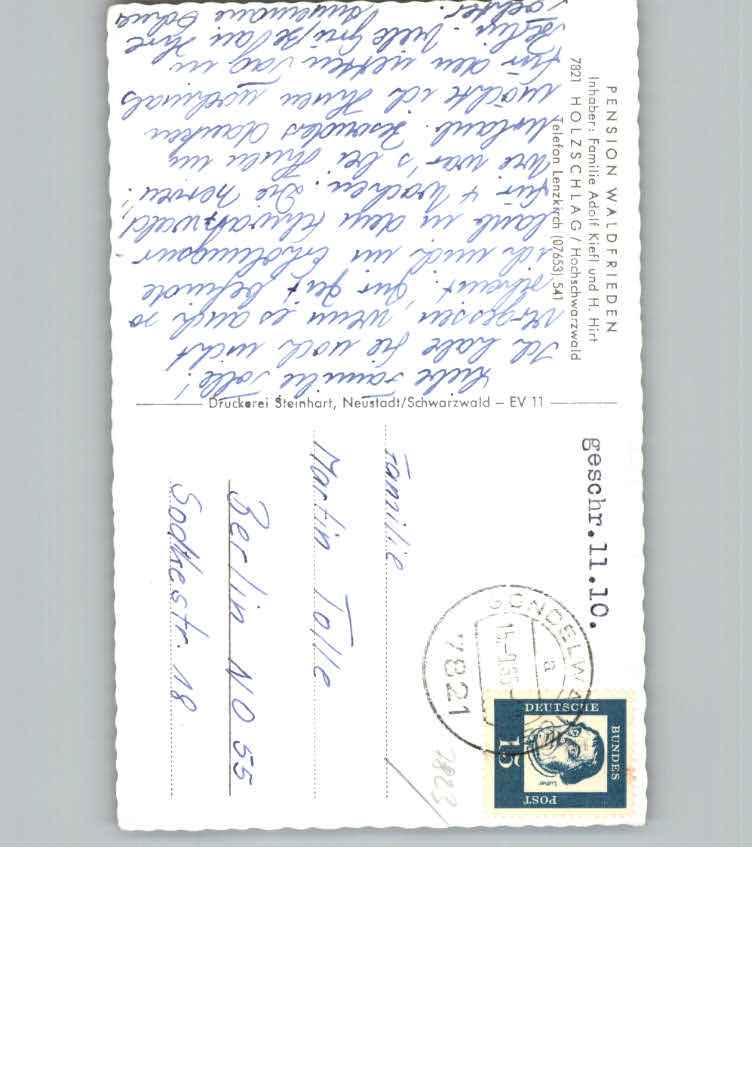 PENSION WALDFRIEDEN
Inhaber: Familie Adolf Kiefl und H. Hirt
7821 HOLZSCHLAG / Hochschwarzwald
Telefon Lenzkirch (07653) 541
Liebe Familie Tolle!
Ich habe Sie noch nicht
vergessen, wenn es auch so
scheint. Zur Zeit befinde
ich mich im Erholungsur-
laub in dem Schwarzwald
für 4 Wochen. Die Nerven!
Wie war's bei Ihnen im
Urlaub. Besonders danken
möchte ich Ihnen nochmals
für den netten Tag in
Berlin. Viele Grüße an Ihre
Tochter.
Druckerei Steinhart, Neustadt/Schwarzwald – EV 11
geschr.11.10.
GÜNDELW
a
7821
DEUTSCHE
BUNDES
POST
15
Luther
Familie
Martin Tolle
Berlin NO 55
Sodtkestr. 18